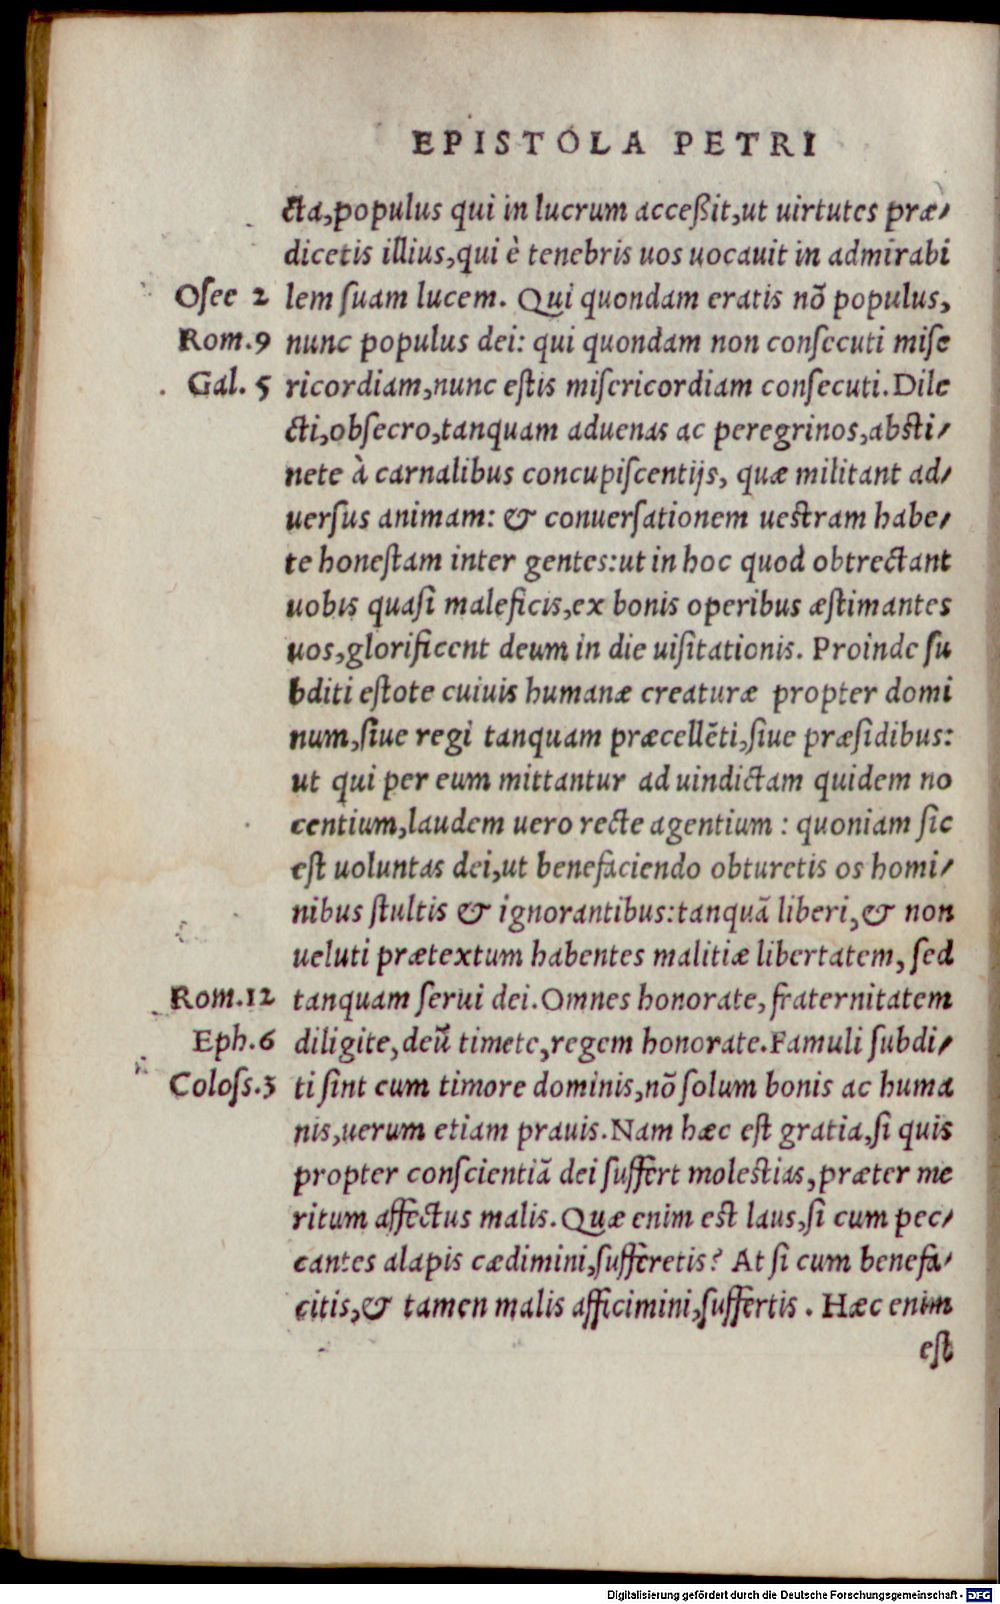 EPISTOLA PETRI
cta,populus qui in lucrum acceßit,ut uirtutes præ-
dicetis illius,qui è tenebris uos uocauit in admirabi
Osee 2 lem suam lucem. Qui quondam eratis nõ populus,
Rom.9 nunc populus dei: qui quondam non consecuti mise
Gal. 5 ricordiam,nunc estis misericordiam consecuti.Dile
cti,obsecro,tanquam aduenas ac peregrinos,absti-
nete à carnalibus concupiscentijs, quæ militant ad-
uersus animam: & conuersationem uestram habe-
te honestam inter gentes:ut in hoc quod obtrectant
uobis quasi maleficis,ex bonis operibus æstimantes
uos,glorificent deum in die uisitationis. Proinde su
bditi estote cuiuis humanæ creaturæ propter domi
num,siue regi tanquam præcellẽti,siue præsidibus:
ut qui per eum mittantur ad uindictam quidem no
centium,laudem uero recte agentium : quoniam sic
est uoluntas dei,ut benefaciendo obturetis os homi-
nibus stultis & ignorantibus:tanquã liberi,& non
ueluti prætextum habentes malitiæ libertatem, sed
Rom.12 tanquam serui dei.Omnes honorate, fraternitatem
Eph.6 diligite,deũ timete,regem honorate.Famuli subdi-
Coloss.3 ti sint cum timore dominis,nõ solum bonis ac huma
nis,uerum etiam prauis.Nam hæc est gratia,si quis
propter conscientiã dei suffert molestias,præter me
ritum affectus malis.Quæ enim est laus,si cum pec-
cantes alapis cædimini,sufferetis? At si cum benefa-
citis,& tamen malis afficimini,suffertis . Hæc enim
est
Digitalisierung gefördert durch die Deutsche Forschungsgemeinschaft - DFG